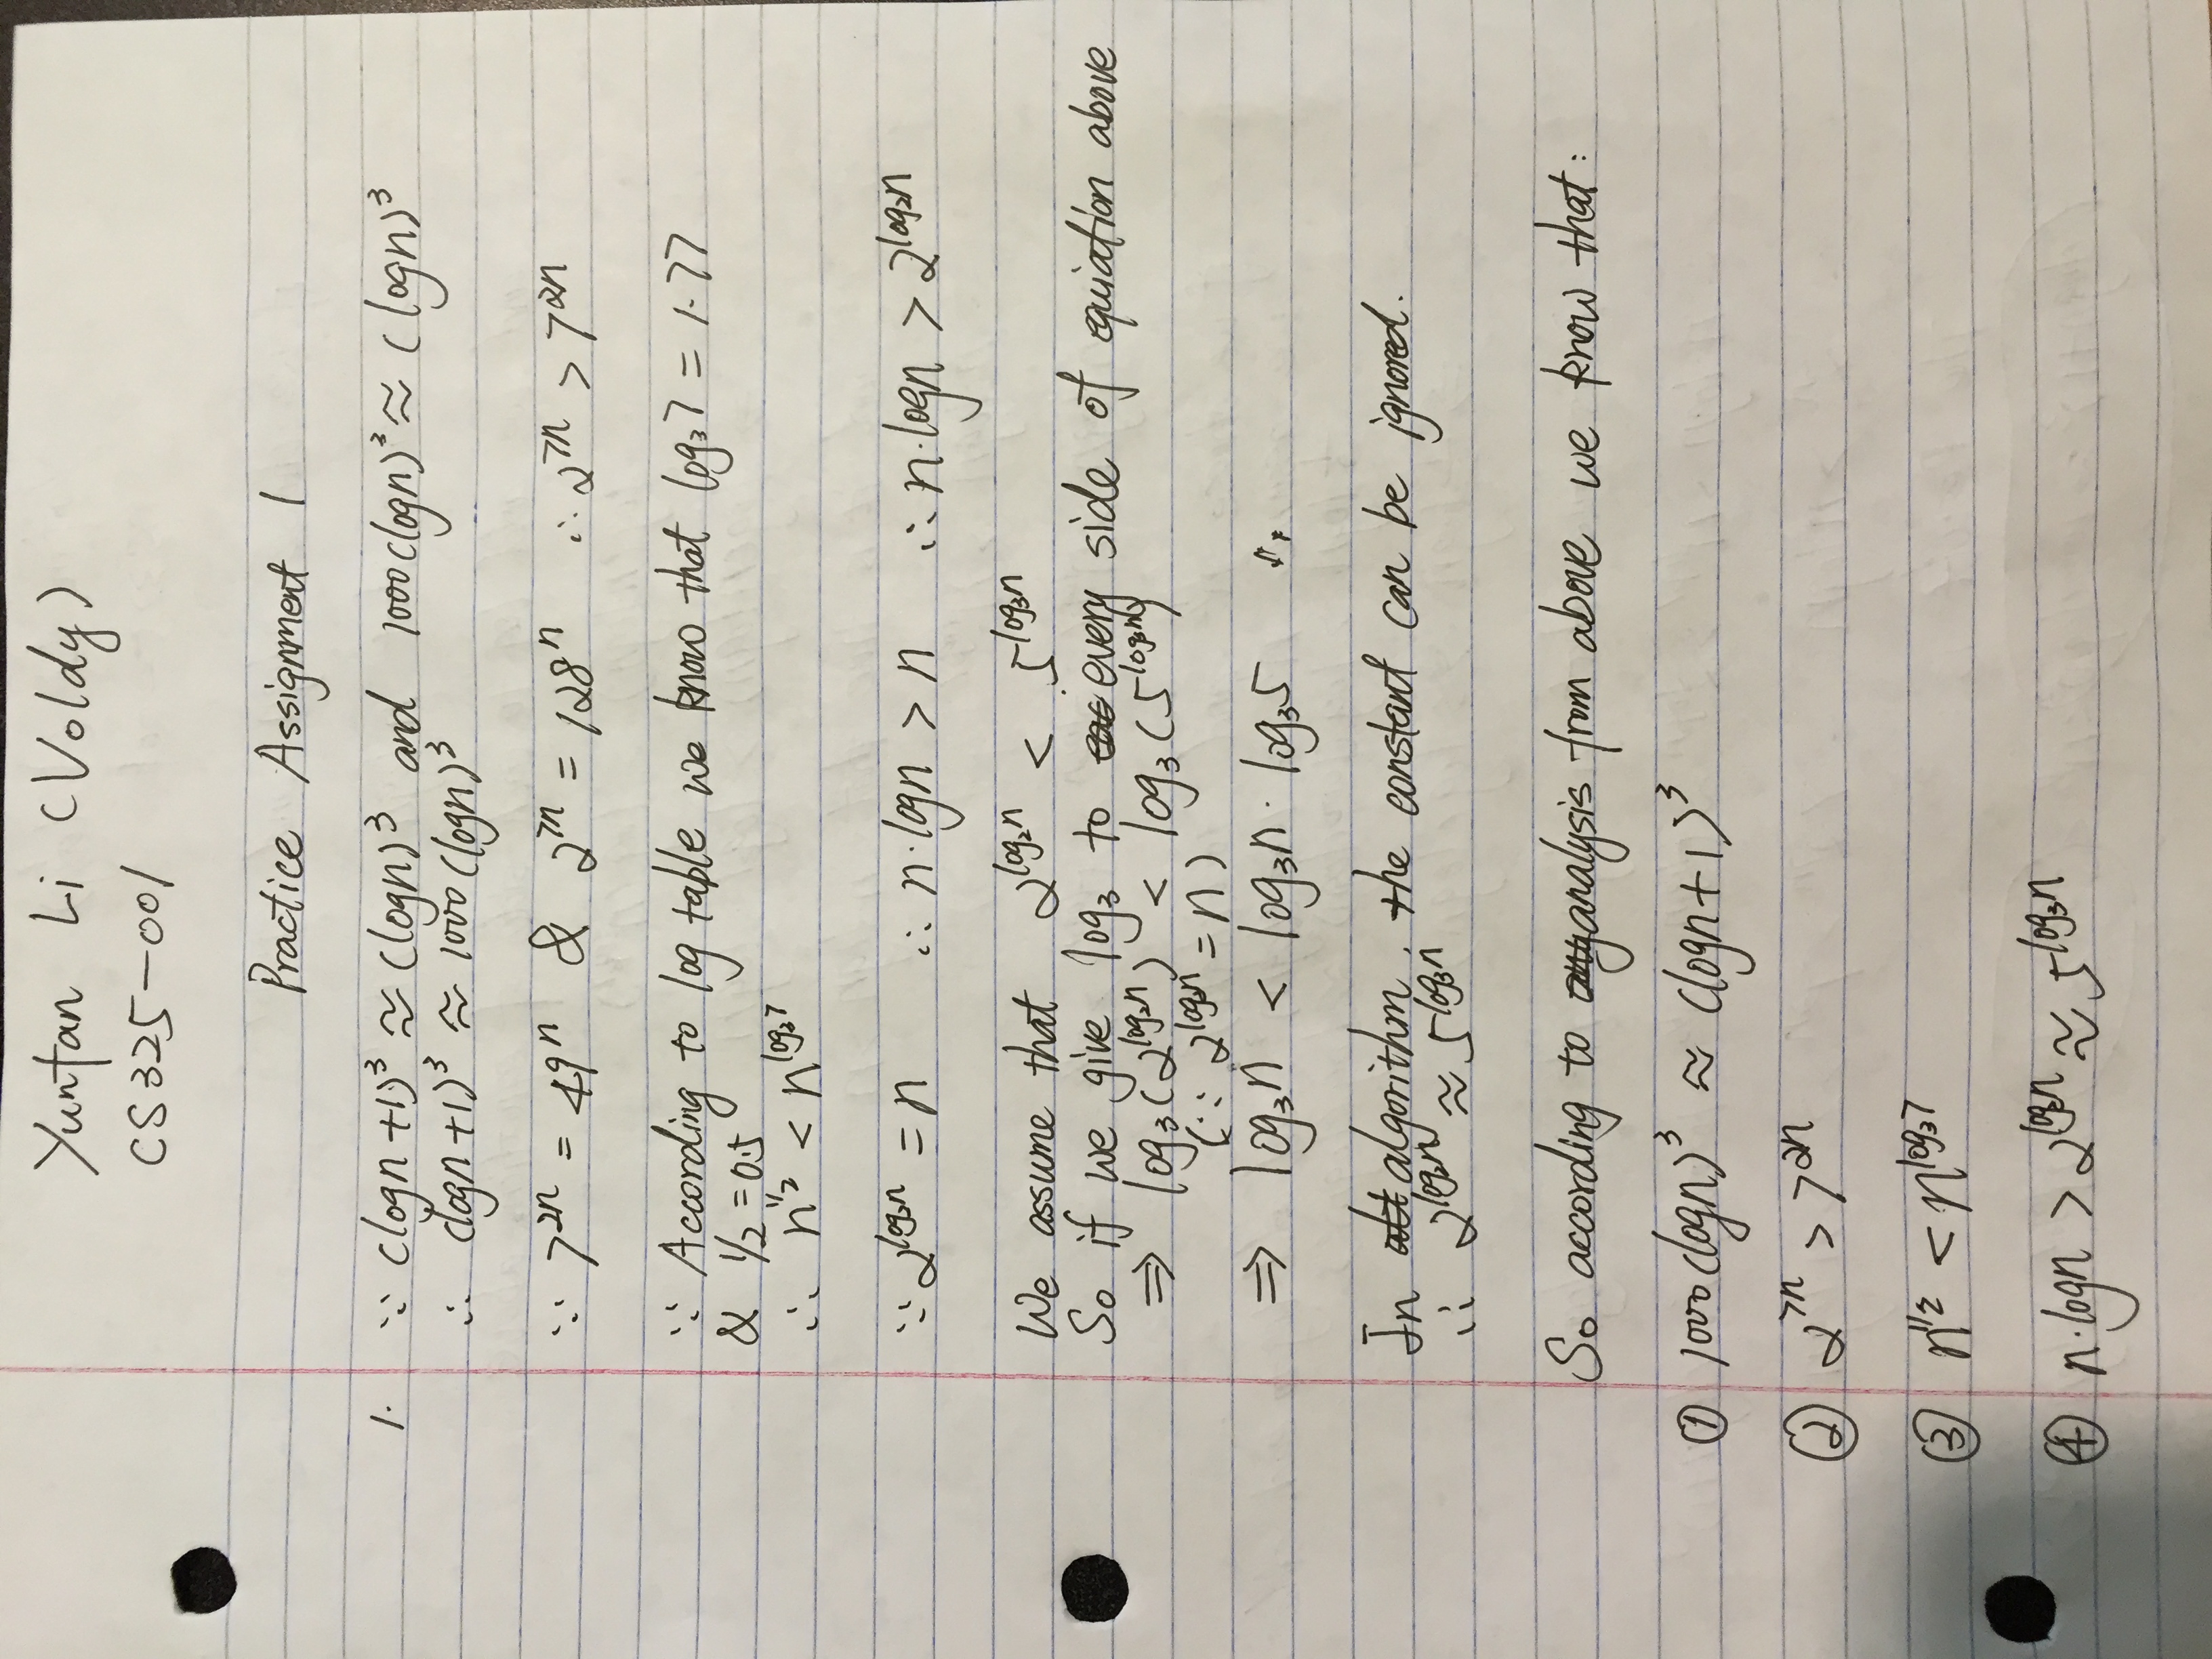 Yuntan Li (Voldy)
CS325-001
Practice Assignment 1
1. ∵ (logn+1)³ ≈ (logn)³ and 1000(logn)³ ≈ (logn)³
∴ (logn+1)³ ≈ 1000(logn)³
∵ 7²ⁿ = 49ⁿ & 2⁷ⁿ = 128ⁿ ∴ 2⁷ⁿ > 7²ⁿ
∵ According to log table we know that log₃7 = 1.77
& 1/2 = 0.5
∴ n^(1/2) < n^(log₃7)
∵ 2^(log₂n) = n ∴ n·logn > n ∴ n·logn > 2^(log₂n)
We assume that 2^(log₂n) < 5^(log₃n)
So if we give log₃ to every side of equiation above
⇒ log₃(2^(log₂n)) < log₃(5^(log₃n))
(∵ 2^(log₂n) = n)
⇒ log₃n < log₃n · log₃5
In algorithm, the constant can be ignored.
∴ 2^(log₂n) ≈ 5^(log₃n)
So according to analysis from above we know that:
① 1000(logn)³ ≈ (logn+1)³
② 2⁷ⁿ > 7²ⁿ
③ n^(1/2) < n^(log₃7)
④ n·logn > 2^(log₂n) ≈ 5^(log₃n)